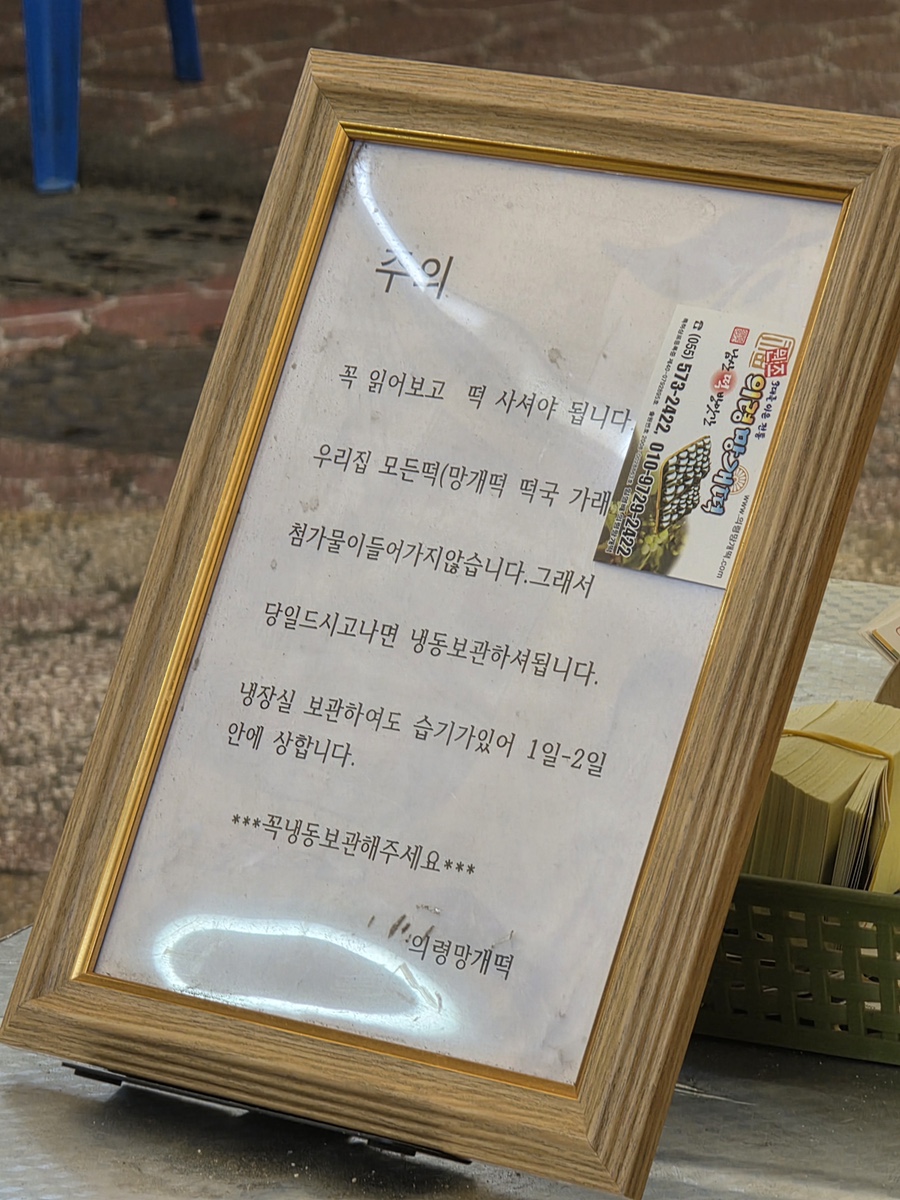 주의
꼭 읽어보고 떡 사셔야 됩니다
우리집 모든떡(망개떡 떡국 가래
첨가물이들어가지않습니다.그래서
당일드시고나면 냉동보관하셔됩니다.
냉장실 보관하여도 습기가있어 1일-2일
안에 상합니다.
***꼭냉동보관해주세요***
의령망개떡
3대를 이은 전통
의령 망개떡
www.의령망개떡.com
남산떡방앗간
☎ (055) 573-2422, 010-9729-2422